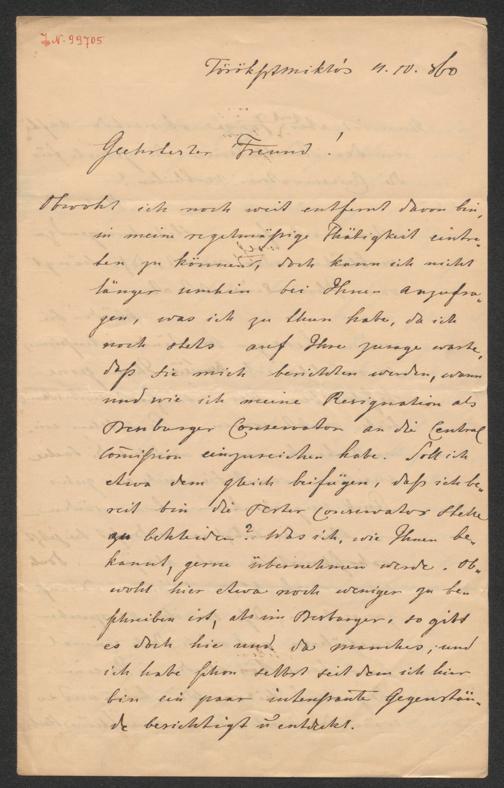 J.N. 99705
Törökszt miklós 11. IV. 860
Geehrtester Freund!
Obwohl ich noch weit entfernt davon bin,
in meine regelmässige Thätigkeit eintre-
ten zu können, doch kann ich nicht
länger umhin bei Ihnen anzufra-
gen, was ich zu thun habe, da ich
noch stets auf Ihre zusage warte,
daß Sie mich berichten werden, wann
und wie ich meine Resignation als
Conservator an die Central
Com̄ission einzureichen habe. Soll ich
etwa dem gleich beifügen, daß ich be-
reit bin die Pester Conservator Stelle
zu bekleiden? Was ich, wie Ihnen be-
kannt, gerne übernehmen werde. Ob-
wohl hier etwa noch weniger zu be-
schreiben ist, als im so gibt
es doch hie und da manches, und
ich habe schon selbst seit dem ich hier
bin ein paar intressante Gegenstän-
de besichtigt ū entdeckt.